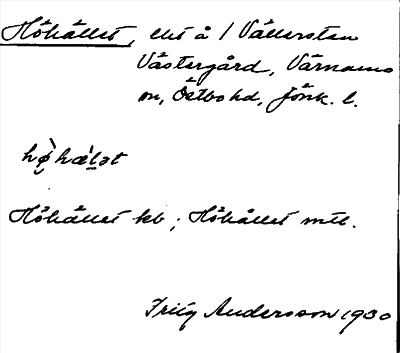 Höhället, å 1 Vällersten
Västergård, Värnamo
sn, Östbo hd, Jönk. l.
hø̀hæ̀lət
Höhället kb; Höhället mtl.
Andersson 1930